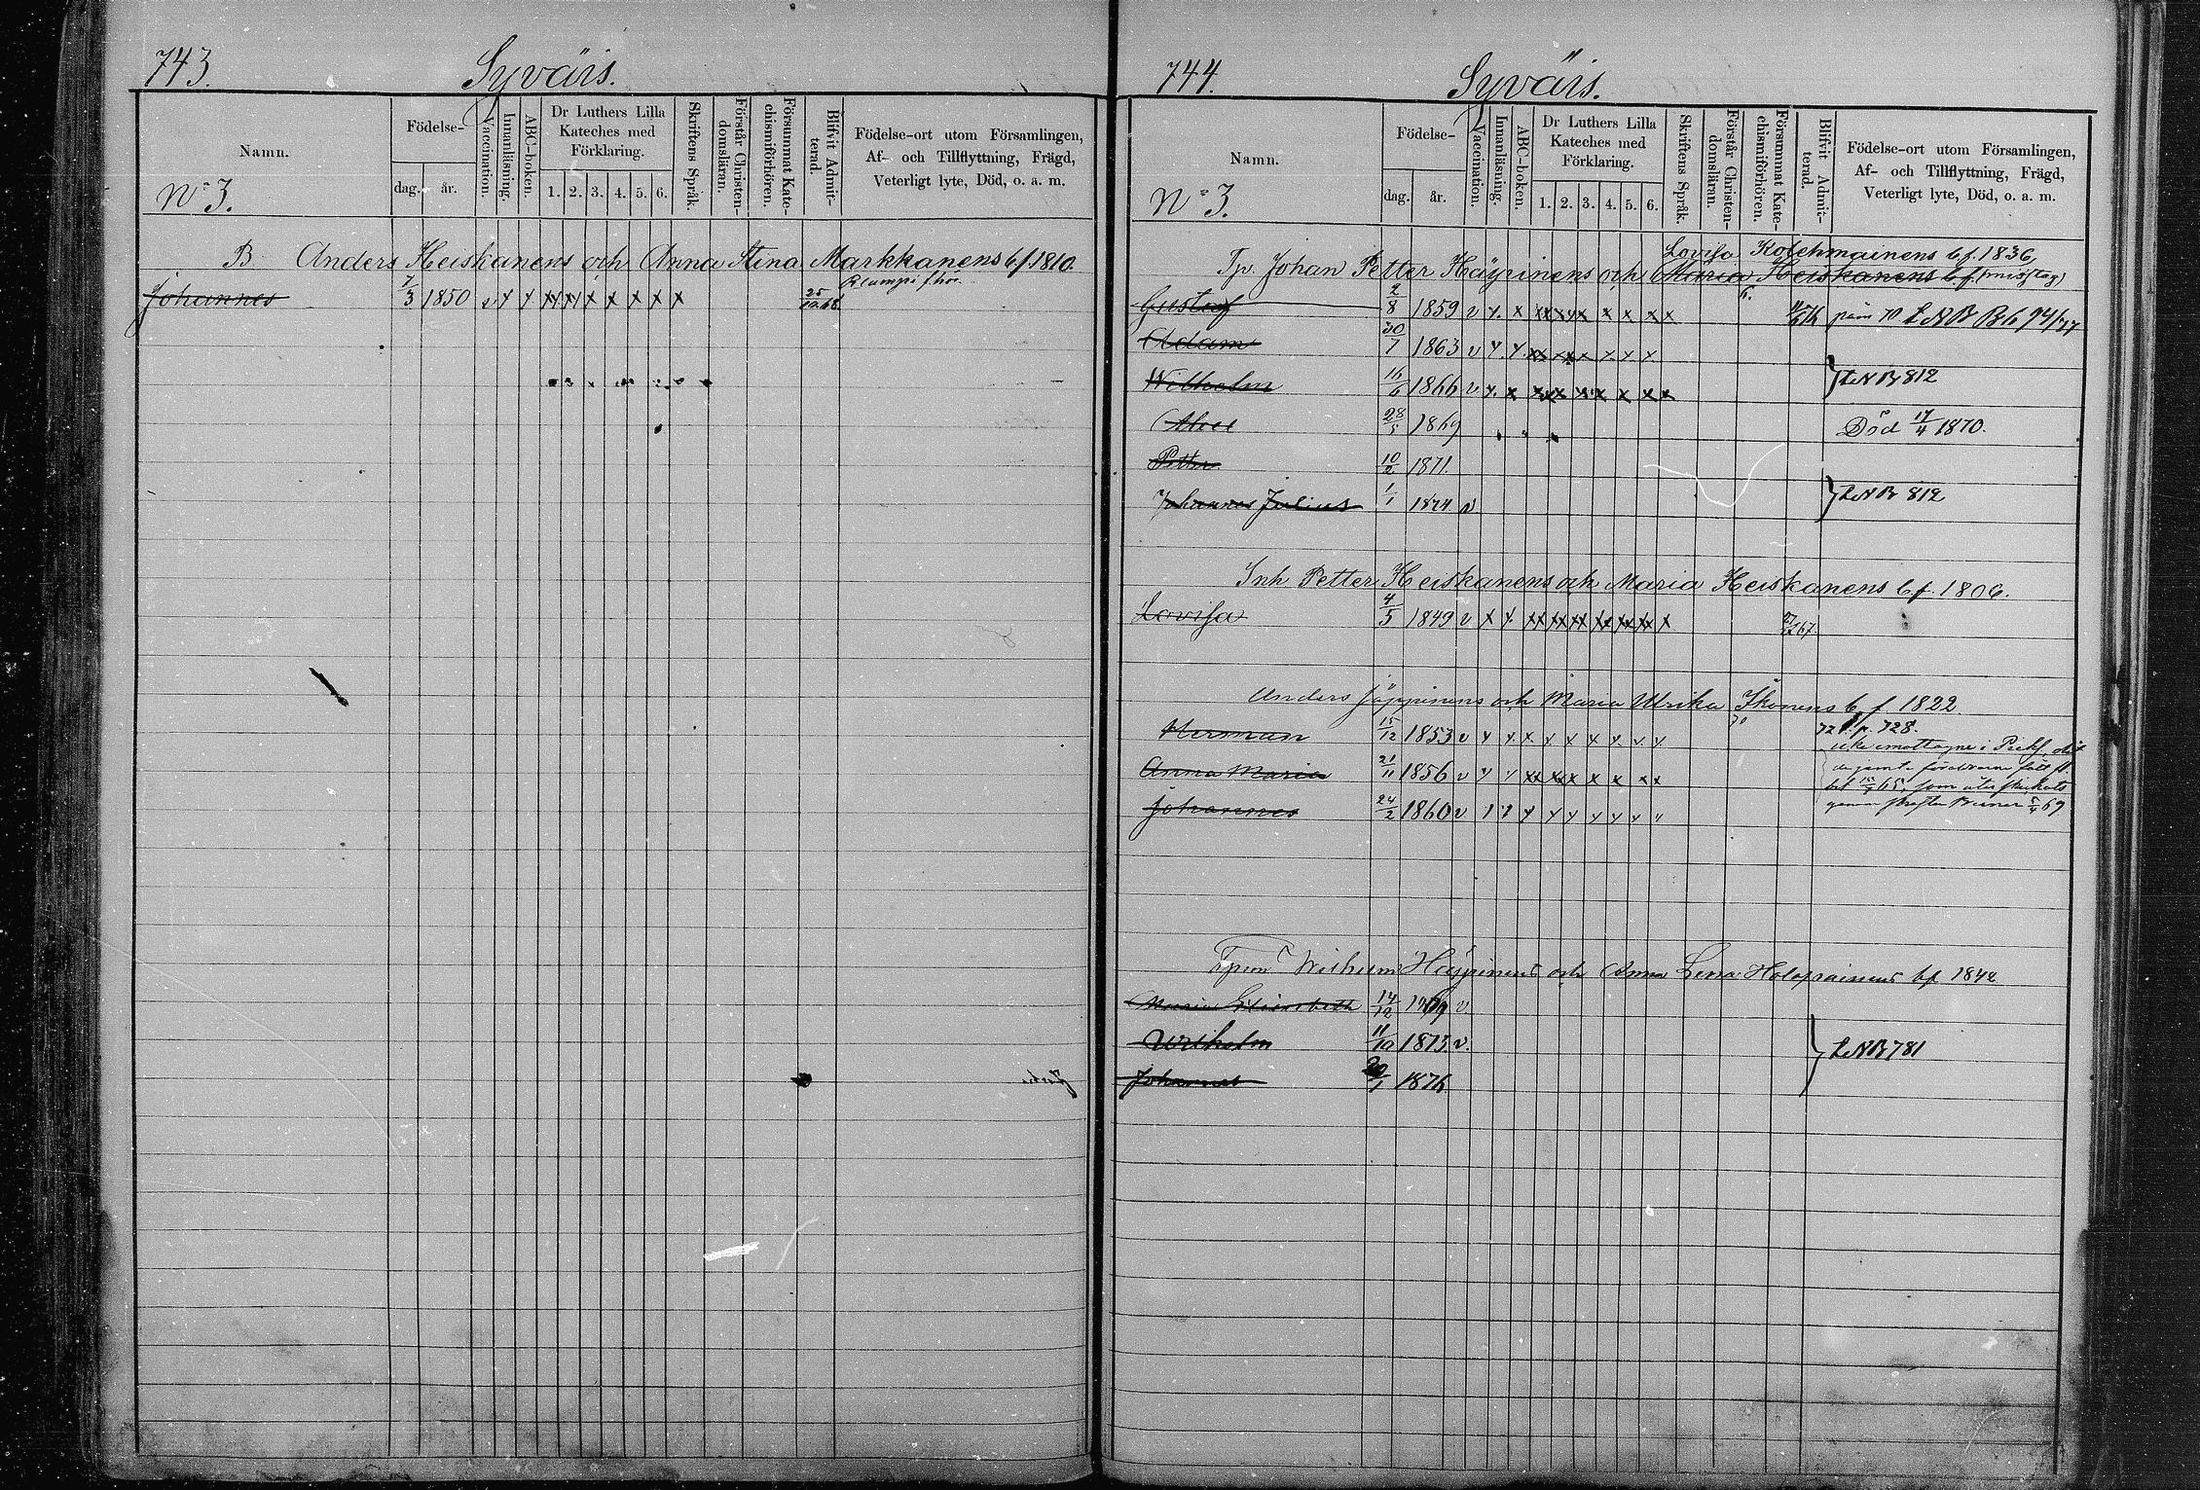 743.
Syväis.
Namn.
Födelse-
dag. år.
Vaccination.
Innanläsning.
ABC-boken.
Dr Luthers Lilla Kateches med Förklaring.
1. 2. 3. 4. 5. 6.
Skriftens Språk.
Förstår Christendomsläran.
Försummat Katechismiförhören.
Blifvit Admitterad.
Födelse-ort utom Församlingen,
Af- och Tillflyttning, Frägd,
Veterligt lyte, Död, o. a. m.
No 3.
B Anders Heiskanens och Anna Stina Markkanens b.f. 1810.
Johannes 7/3 1850 v
744.
Syväis.
Namn.
Födelse-
dag. år.
Vaccination.
Innanläsning.
ABC-boken.
Dr Luthers Lilla Kateches med Förklaring.
1. 2. 3. 4. 5. 6.
Skriftens Språk.
Förstår Christendomsläran.
Försummat Katechismiförhören.
Blifvit Admitterad.
Födelse-ort utom Församlingen,
Af- och Tillflyttning, Frägd,
Veterligt lyte, Död, o. a. m.
No 3.
Lovisa Kolehmainens b.f. 1836,
Tp. Johan Petter Häyrinens och Maria Heiskanens b.f. (misstag)
Gustaf 2/8 1859 v
Adam 30/7 1863 v
Wilhelm 16/6 1866 v LNB 812
Abel 28/5 1869 Död 17/4 1870.
Petter 10/2 1871.
Johannes Julius 1/1 1874 v LNB 812
Inh Petter Heiskanens och Maria Heiskanens b.f. 1806.
Lovisa 4/5 1849 v
Anders Jäppinens och Maria Ulrika Ikonens b.f 1822.
Herman 15/12 1853 v p. 728.
Anna Maria 21/11 1856 v
Johannes 24/2 1860 v
Wilhelm Häyrinens och Anna Lena Holopainens bf 1842
Maria Elisabeth 14/12 1869 v
Wilhelm 11/10 1873. v. LNB 781
Johannes 20/1 1876.